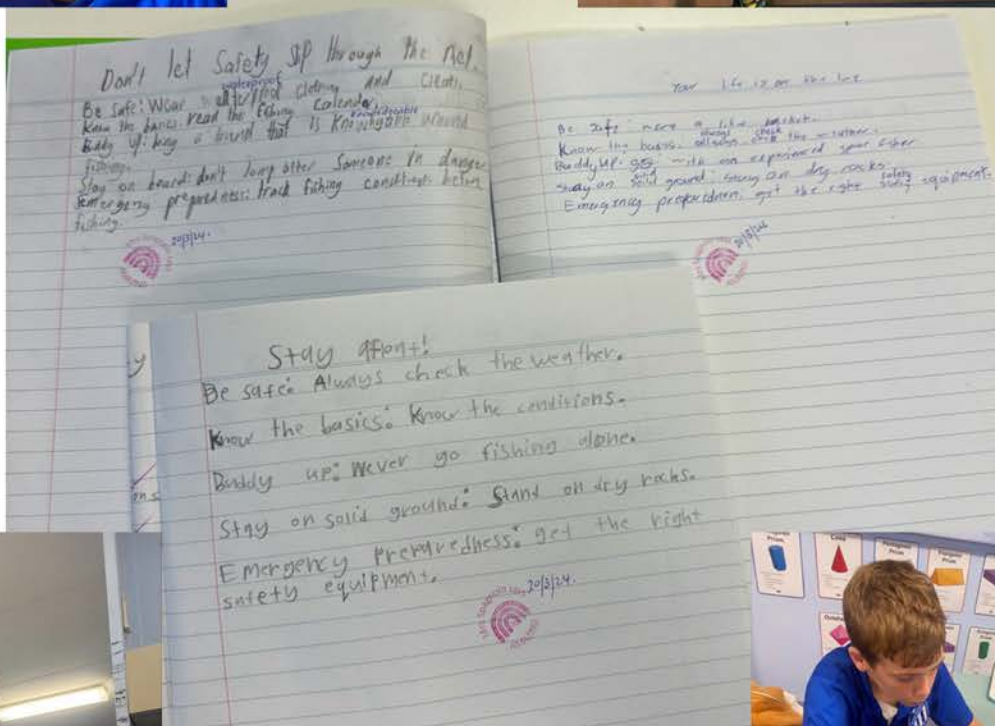 Don't let Safety slip through the net.
waterproof
Be Safe: Wear waterproof clothing and cleats.
Know the basics: read the fishing calendar.
knowledgeable
Buddy up: bring a friend that is around
fishing.
Stay on board: don't jump after someone in danger
Emergency preparedness: track fishing conditions before
fishing.
20/3/24.
Your life is on the line
Be safe: wear a life jacket.
always check
Know the basics: the weather.
Buddy up: go with an experienced fisher
solid
Stay on solid ground: stay on dry rocks.
safety
Emergency preparedness: get the right equipment.
20/3/24
Stay afloat!
Be safe: Always check the weather.
Know the basics: Know the conditions.
Buddy up: Never go fishing alone.
Stay on solid ground: Stand on dry rocks.
Emergency preparedness: get the right
safety equipment.
20/3/24.
Cone